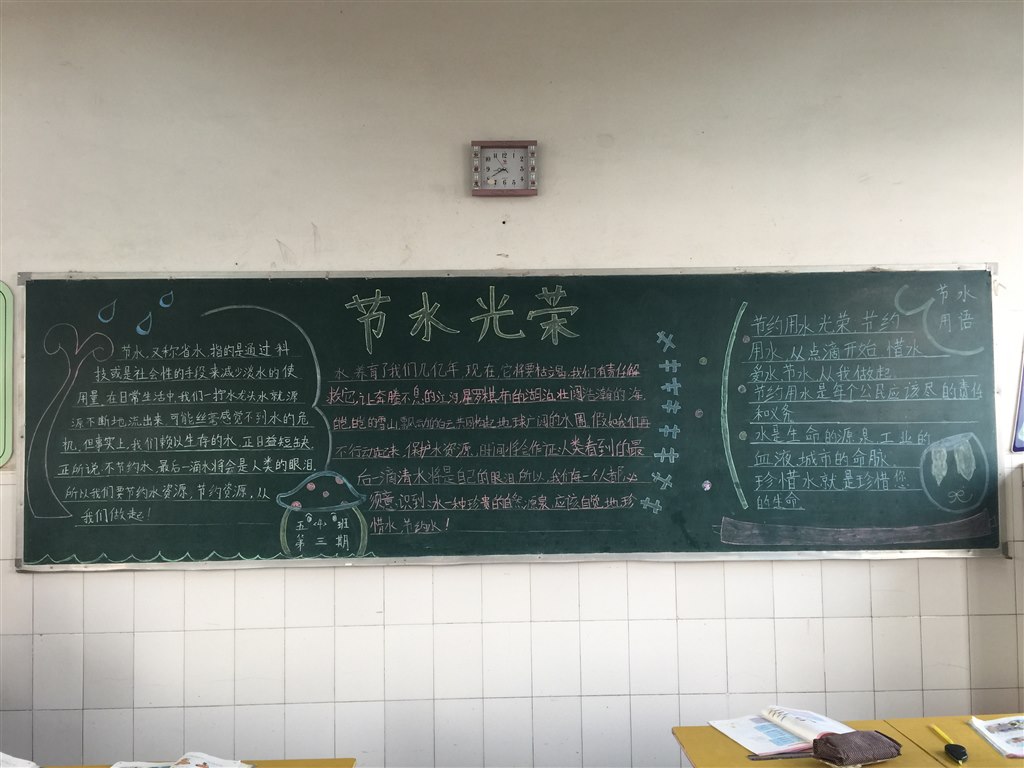 节水光荣
节水,又称省水,指的是通过科
技或是社会性的手段来减少淡水的使
用量,在日常生活中,我们一拧水龙头水就源
源不断地流出来,可能丝毫感觉不到水的危
机,但事实上,我们赖以生存的水,正日益短缺,
正所说,不节约水,最后一滴水将会是人类的眼泪,
所以我们要节约水资源,节约资源,从
我们做起!
五(4)班
第三期
水,养育了我们几亿年,现在,它将要枯竭,我们有责任解
救它,让奔腾不息的江河,星罗棋布的湖泊,壮阔浩瀚的海
皑皑的雪山,飘动的云共同撑起地球广阔的水圈,假如我们再
不行动起来,保护水资源,时间将会作证:人类看到的最
后一滴清水将是自己的眼泪,所以,我们每一个人都必
须意识到:水一种珍贵的自然源泉,应该自觉地珍
惜水,节约水!
节水
用语
节约用水光荣,节约
用水,从点滴开始,惜水
爱水节水,从我做起
节约用水是每个公民应该尽的责任
和义务
水是生命的源泉,工业的
血液,城市的命脉
珍惜水就是珍惜您
的生命,